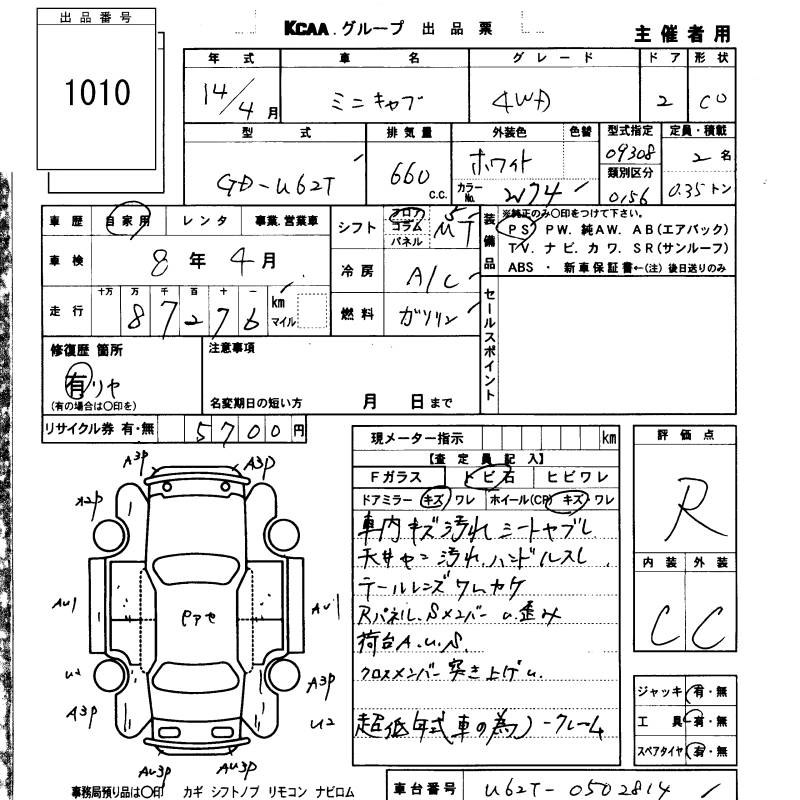 出品番号
1010
KCAA.グループ 出品票
主催者用
年式 車名 グレード ドア 形状
14/4月 ミニキャブ 4WD 2 CO
型式 排気量 外装色 色替 型式指定 定員・積載
GD-U62T 660 c.c. ホワイト 09308 2名
カラーNo. W74 類別区分 0156 0.35トン
車歴 自家用 レンタ 事業.営業車
シフト フロア コラム パネル 5 MT
装備品 ※純正のみ〇印をつけて下さい。
PS PW. 純AW. AB(エアバック)
TV. ナビ. カワ. SR(サンルーフ)
ABS ・ 新車保証書←(注) 後日送りのみ
車検 8年4月
冷房 A/C
走行 十万 万 千 百 十 一 km マイル
87276
燃料 ガソリン
セールスポイント
修復歴 箇所
有 リヤ
(有の場合は〇印を)
注意事項
名変期日の短い方 月 日まで
リサイクル券 有・無 5700円
現メーター指示 km
【査定員記入】
Fガラス トビ石 ヒビワレ
ドアミラー キズ ワレ ホイール(CP) キズ・ワレ
車内キズ汚れ シートヤブレ
天井ヤニ汚れ.ハンドルスレ
テールレンズワレカケ
Rパネル.Sメンバーu.歪み
荷台A.U.S.
クロスメンバー突き上げu.
超低年式車の為ノークレーム
評価点
R
内装 外装
C C
ジャッキ 有・無
工具 有・無
スペアタイヤ 有・無
A3P A3P
A2P
AU1 PアセAU1
U2 A3P
A3P U2
AU3P AU3P
事務局預り品は〇印 カギ シフトノブ リモコン ナビロム
車台番号 U62T-0502814